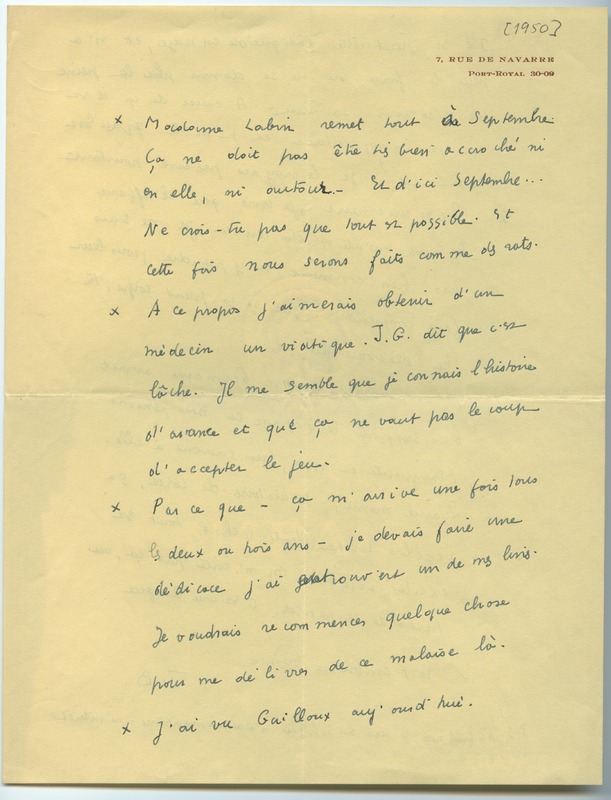 [1950]
7, RUE DE NAVARRE
PORT-ROYAL 30-09
x Madame Labin remet tout à Septembre.
Ça ne doit pas être très bien accroché ni
en elle, ni autour - Et d'ici Septembre...
Ne crois-tu pas que tout est possible. Et
cette fois nous serons faits comme des rats.
x A ce propos j'aimerais obtenir d'un
médecin un viatique. J.G. dit que c'est
lâche. Il me semble que je connais l'histoire
d'avance et que ça ne vaut pas le coup
d'accepter le jeu.
x Parce que - ça m'arrive une fois tous
les deux ou trois ans - je devais faire une
dédicace j'ai ouvert un de mes livres.
Je voudrais recommencer quelque chose
pour me délivrer de ce malaise là.
x J'ai vu Guilloux aujourd'hui.